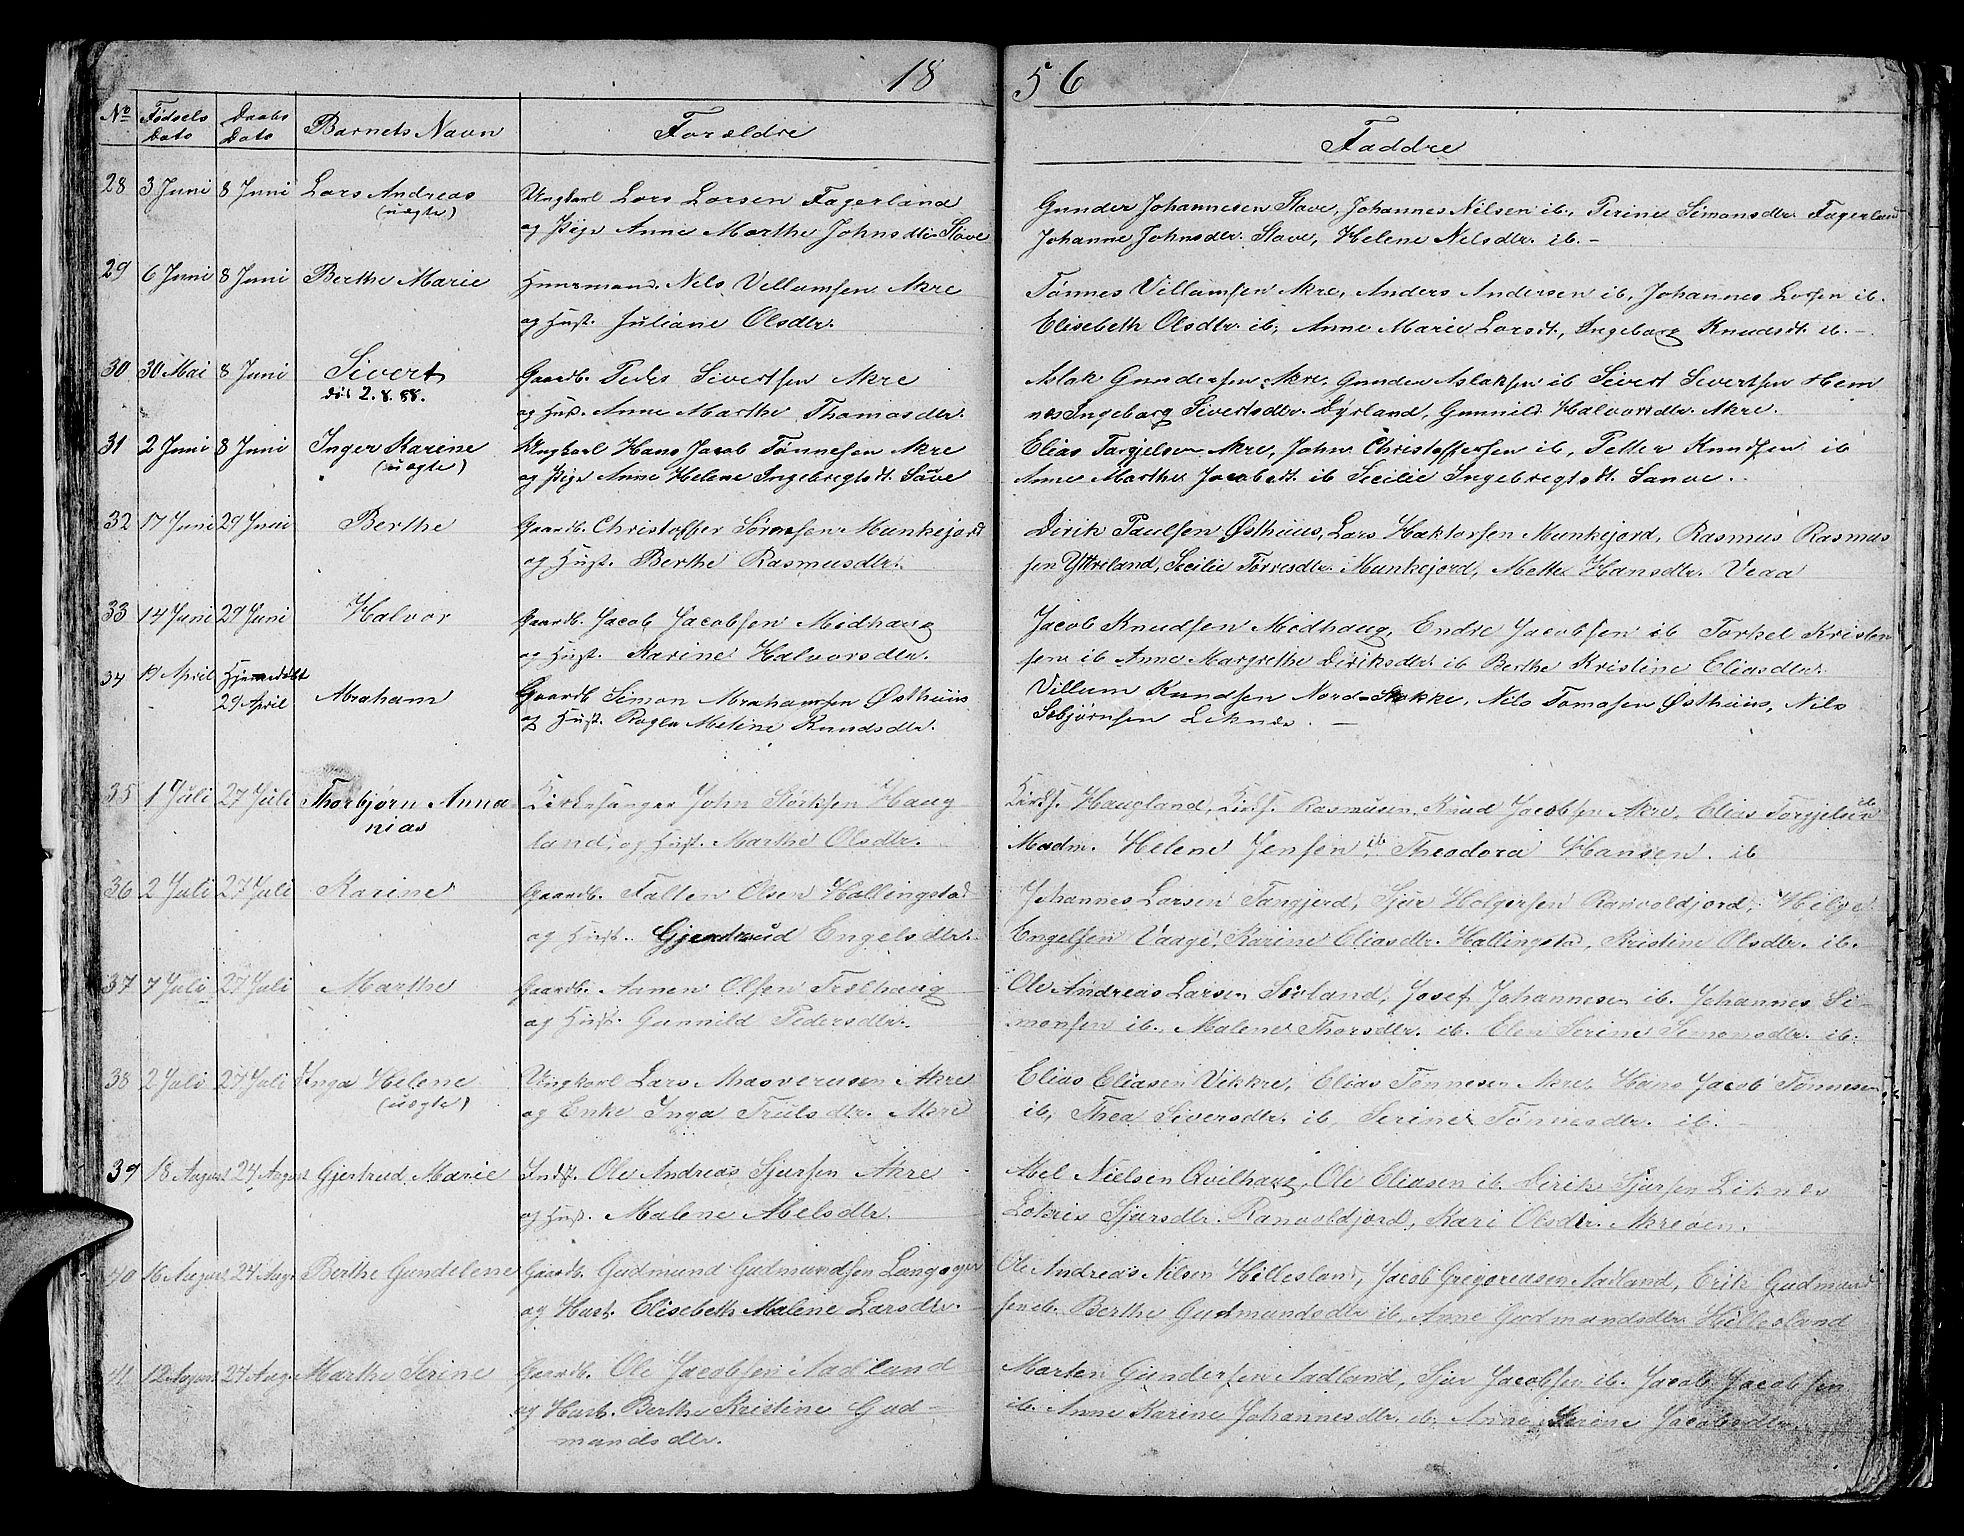 1856
No Fødsels Dato Daabs Dato Barnets Navn Forældre Faddre
28 3 Juni 8 Juni Lars Andreas Ungkarl Lars Larsen Fagerland Gunder Johannesen Stave, Johannes Nilsen ib, Serine Simonsdtr. Fagerland
(uægte) og Pige Anne Marthe Johnsdtr Stave Johanne Johnsdtr. Stave, Helene Nelsdtr. ib. –
29 6 Juni 8 Juni Berthe Marie Huusmand. Nels Villumsen Akre Tønnes Villumsen Akre, Anders Andersen ib, Johannes Larsen ib.
og Hust. Juliane Olsdtr. Elisebeth Olsdtr. ib, Anne Marie Larsdt, Ingeborg Knudsdt. ib. –
30 30 Mai 8 Juni Sivert Gaardb. Peder Sivertsen Akre Aslak Gundersen Akre, Gunder Aslaksen ib Sivert Sivertsen Hem
død 2.8.88. og Hust. Anne Marthe Thomasdtr. nes Ingeborg Sivertsdtr. Dyrland, Gunnild Halvorsdtr. Akre.
31 2 Juni 8 Juni Inger Karine Ungkarl Hans Jacob Tønnesen Akre Elias Torgjelsen Akre, John Christoffersen ib, Petter Knudsen ib
(uægte) og Pige Anne Helene Ingebregtsdt. Save Anne Marthe Jacobsdt. ib Secilie Ingebregtsdt. Sanve.
32 17 Juni 29 Juni Berthe Gaardb. Christoffer Sørensen Munkejord Dirik Paulsen Østhuus, Lars Haktorsen Munkejord, Rasmus Rasmus
og Hust. Berthe Rasmusdtr. sen Yttreland, Secilie Torresdtr. Munkejord, Mette Hansdtr. Veaa
33 14 Juni 29 Juni Halvor Gaardb. Jacob Jacobsen Medhaug Jacob Knudsen Medhaug, Endre Jacobsen ib Torkel Kristen
og Hust. Karine Halvorsdtr. sen ib Anne Margrethe Diriksdtr. ib Berthe Kristine Eliasdtr.
34 19 April Hjemmedøbt Abraham Gaardb Simon Abrahamsen Østhuus Villum Knudsen Nord-Stokke, Nils Tomasen Østhuus, Nils
29 April og Hust. Metine Knudsdtr. Sebjørnsen Liknes. –
35 1 Juli 27 Juli Thorbjørn Anna Kirkesanger John Størksen Haug Kirks. Haugland, Kirks. Rasmusen, Knud Jacobsen Akre, Elias Torgjelsen ib
nias land, og Hust. Marthe Olsdtr. Madm. Helene Jensen ib Theodora Hansen. ib
36 2 Juli 27 Juli Karine Gaardb. Falten Olsen Hallingstad Johannes Larsen Tangjerd, Sjur Holgersen Ranvoldjord, Helge
og Hust. Gjertrud Engelsdtr. Engelsen Vaage, Karine Eliasdtr. Hallingstad, Kristine Olsdtr. ib.
37 7 Juli 27 Juli Marthe Gaardb. Aanen Olsen Trælhaug Ole Andreas Larsen Sørland, Josef Johannesen ib. Johannes Si-
og Hust. Gunnild Pedersdtr. monsen ib. Malene Thorsdtr. ib. Elen Serine Simonsdtr. ib.
38 2 Juli 27 Juli Inga Helene Ungkarl Lars Masverusen Akre Elias Eliasen Vikkre, Elias Tønnesen Akre, Hans Jacob Tønnesen
(uægte) og Enke Inga Truls dtr. Akre ib, Thea Siversdtr. ib, Serine Tønnesdtr. ib. –
39 18 August 24 August Gjertrud Marie Indst. Ole Andreas Sjursen Akre Abel Nielsen Qvilhaug, Ole Eliasen ib. Dirik Sjursen Liknes
og Hust. Malene Abelsdtr. Lokris Sjursdtr. Ranvoldjord, Kari Olsdtr. Akreøen.
40 16 August 24 Aug. Berthe Gundelene Gaardb. Gudmund Gudmundsen Langager Ole Andreas Nilsen Hillesland, Jacob Gregoreasen Aadland, Erik Gudmund
og Hust. Elisebeth Malene Larsdtr. sen ib. Berthe Gudmundsdtr ib, Anne Gudmundsdtr Hillesland
41 12 August 24 Aug. Marthe Serine Gaardb. Ole Jacobsen Aadland Marten Gundersen Aadland, Sjur Jacobsen ib. Jacob Jacobsen
og Hust. Berthe Kristine Gud- ib. Anne Karine Johannesdtr. ib. Anne Serine Jacobsdtr.
mandsdtr.